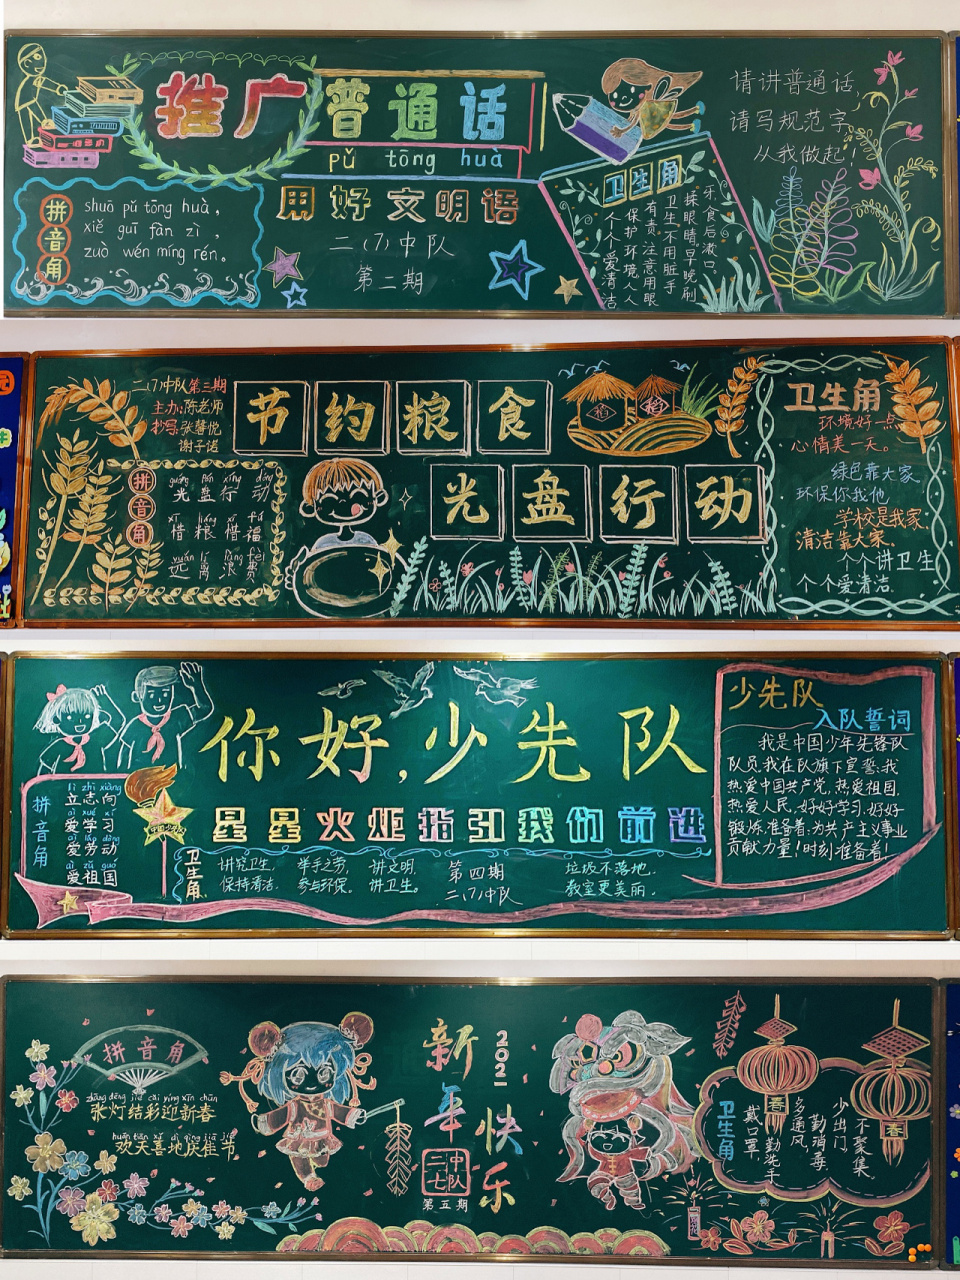 推广普通话
pǔ tōng huà
用好文明语
二(7)中队
第二期
拼音角
shuō pǔ tōng huà，
xiě guī fàn zì，
zuò wén míng rén。
卫生角
牙，食后漱口。
揉眼睛早晚刷
卫生不用脏手
有责注意用眼
保护环境人人
个个爱清洁
请讲普通话，
请写规范字，
从我做起！
二(7)中队第三期
主办：陈老师
抄写：张馨悦
谢子诺
节约粮食
光盘行动
拼音角
guāng pán xíng dòng
光盘行动
xī liáng xī fú
惜粮惜福
yuǎn lí làng fèi
远离浪费
稻
稻
卫生角
环境好一点
心情美一天。
绿色靠大家
环保你我他
学校是我家，
清洁靠大家。
个个讲卫生
个个爱清洁。
你好，少先队
星星火炬指引我们前进
拼音角
lì zhì xiàng
立志向
ài xué xí
爱学习
ài láo dòng
爱劳动
ài zǔ guó
爱祖国
中国少先队
卫生角
讲究卫生，
保持清洁。
举手之劳，
参与环保。
讲文明，
讲卫生。
第四期
二(7)中队
垃圾不落地，
教室更美丽。
少先队
入队誓词
我是中国少年先锋队
队员，我在队旗下宣誓：我
热爱中国共产党，热爱祖国，
热爱人民，好好学习，好好
锻炼，准备着：为共产主义事业
贡献力量！时刻准备着！
拼音角
zhāng dēng jié cǎi yíng xīn chūn
张灯结彩迎新春
huān tiān xǐ dì qìng jiā jié
欢天喜地庆佳节
新年快乐
2021
二七中队
第五期
卫生角
少出门，不聚集，
勤消毒，
多通风，
戴口罩，勤洗手
春
春